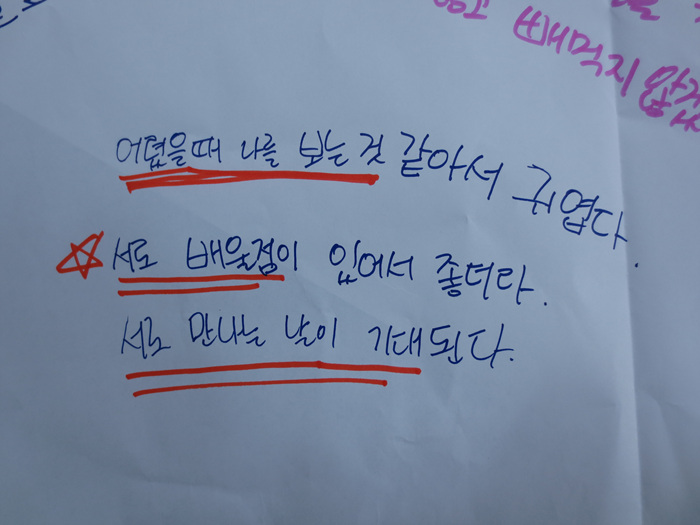 빼먹지 않겠
어렸을때 나를 보는 것 같아서 귀엽다.
서로 배울점이 있어서 좋더라.
서로 만나는 날이 기대된다.